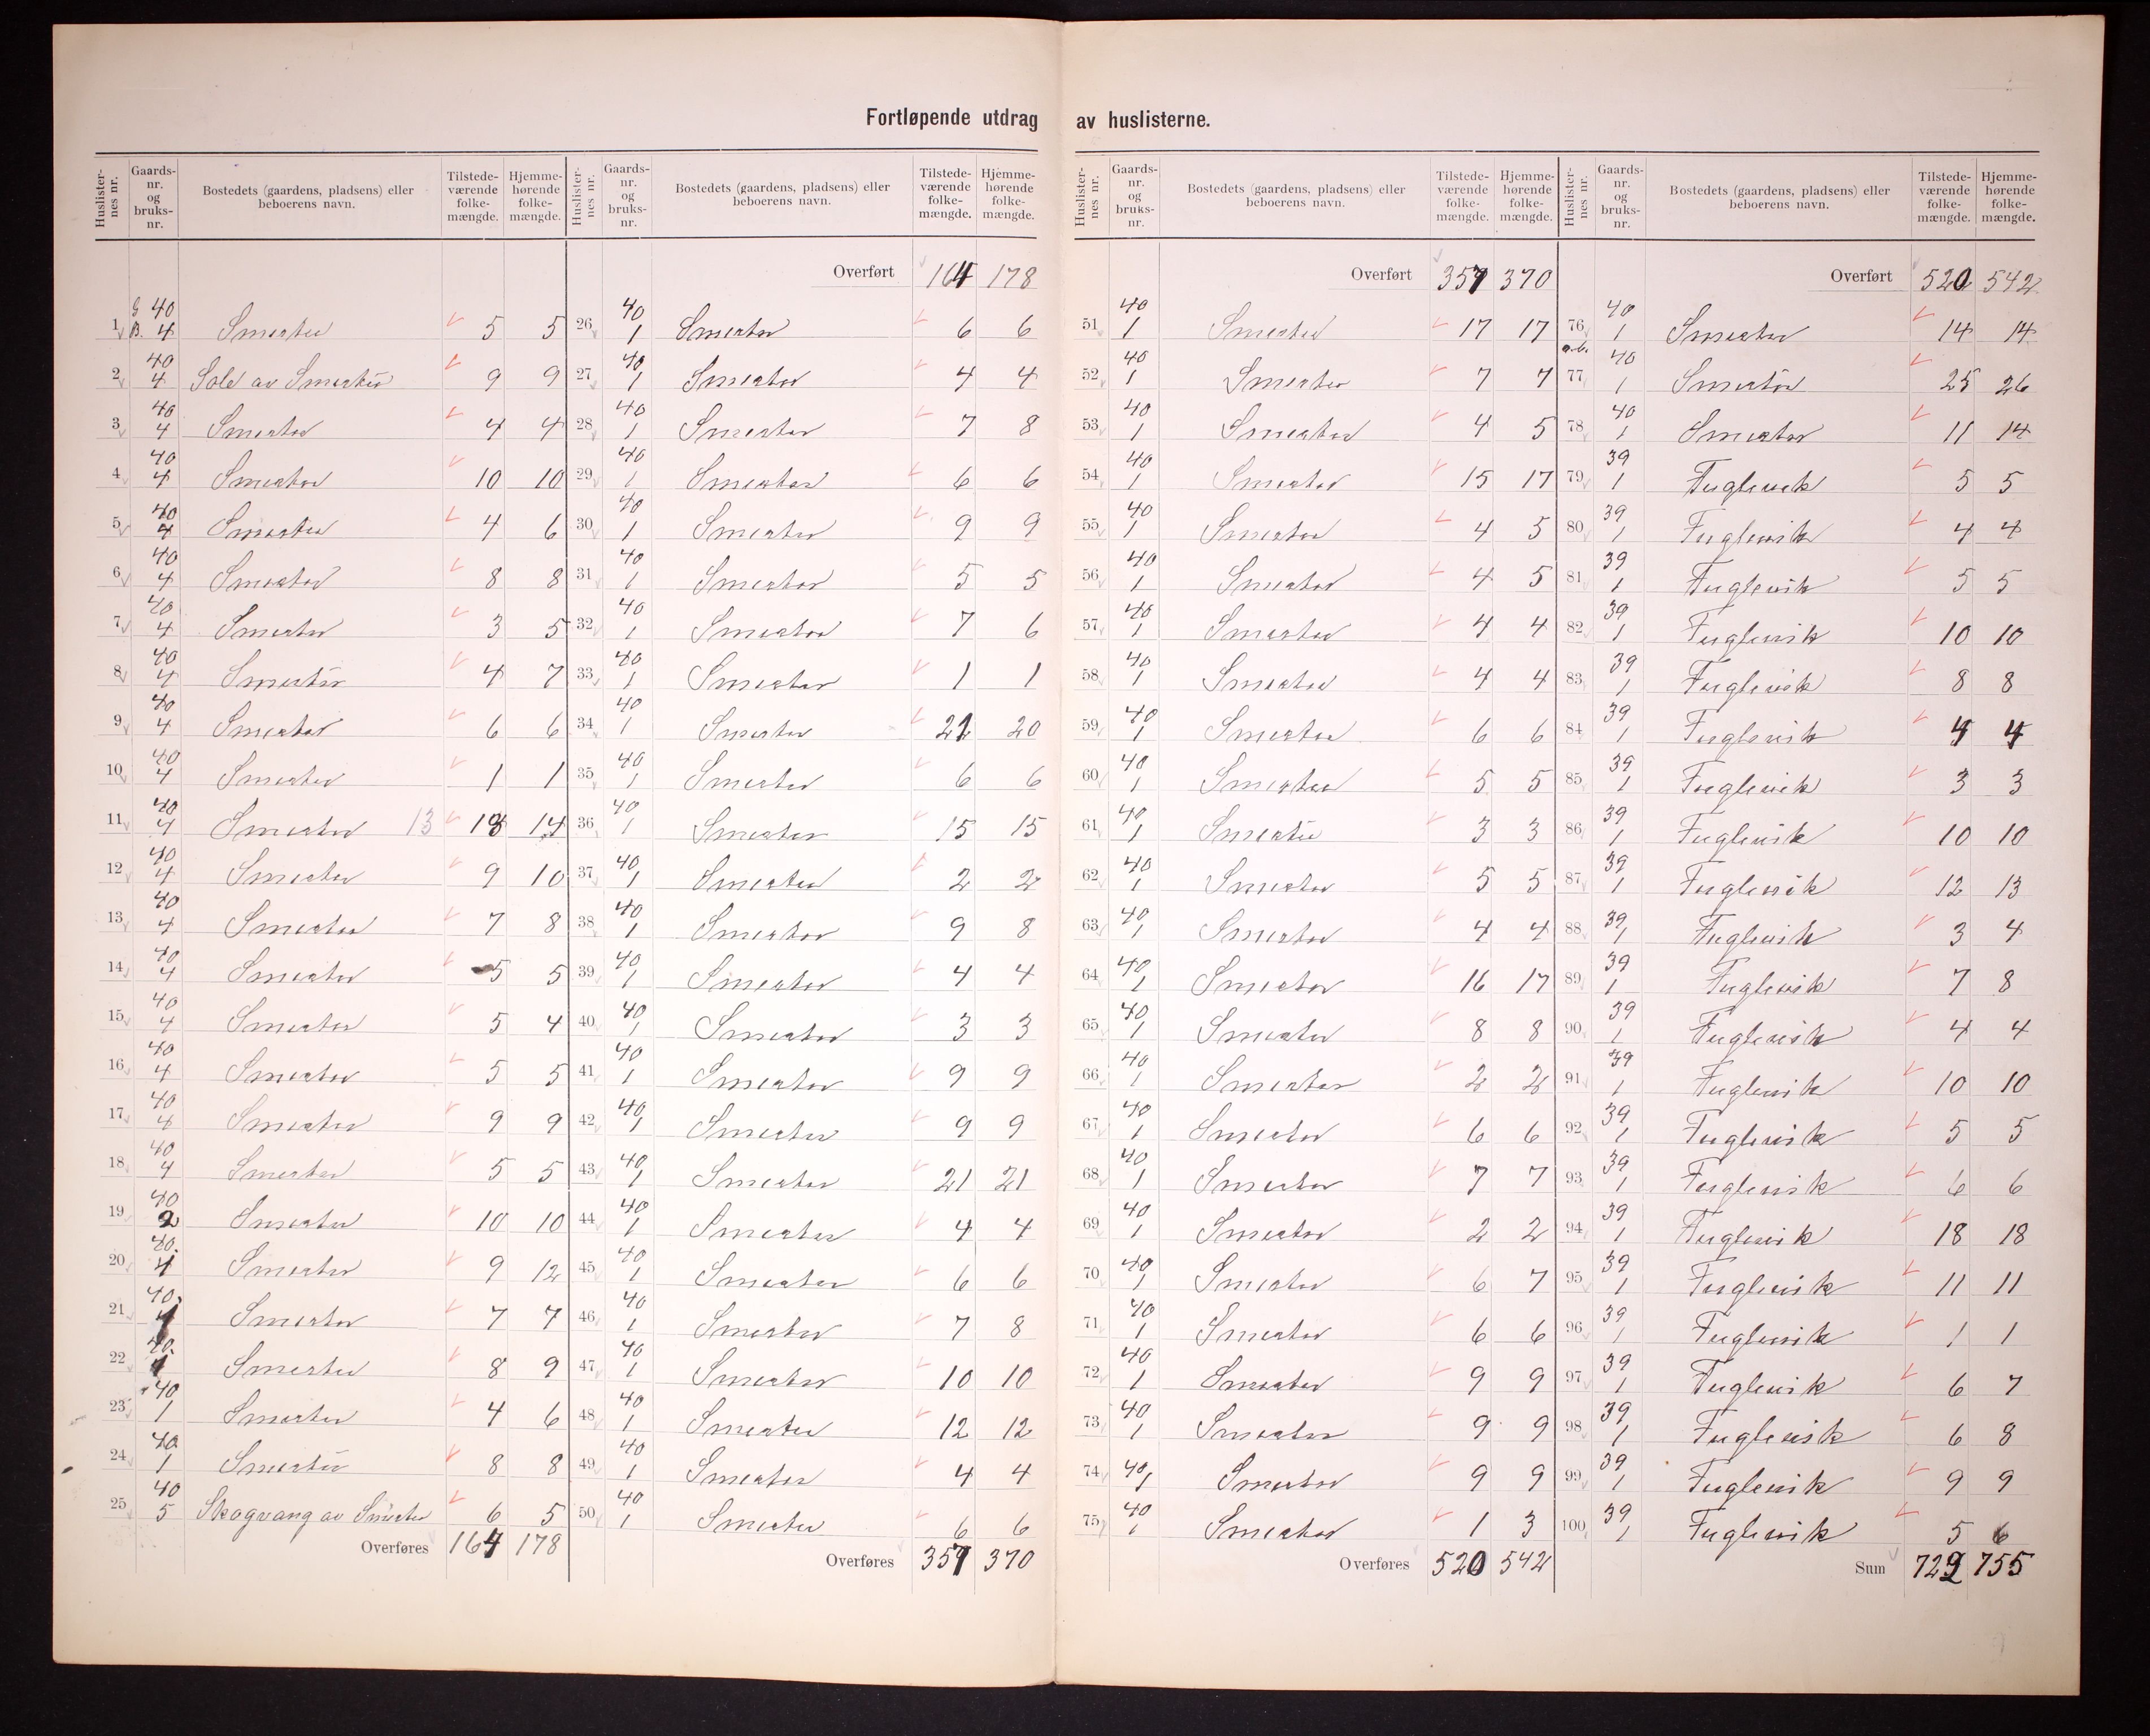 Fortløpende utdrag av huslisterne.
Huslisternes nr. Gaards-nr. og bruks-nr. Bostedets (gaardens, pladsens) eller beboerens navn. Tilstedeværende folkemængde. Hjemmehørende folkemængde.
1 G 40 B. 4 Smertu 5 5
2 40 4 Sole av Smertu 9 9
3 40 4 Smertu 4 4
4 40 4 Smertu 10 10
5 40 4 Smertu 4 6
6 40 4 Smertu 8 8
7 40 4 Smertu 3 5
8 40 4 Smertu 4 7
9 40 4 Smertu 6 6
10 40 4 Smertu 1 1
11 40 4 Smertu 13 13 14
12 40 4 Smertu 9 10
13 40 4 Smertu 7 8
14 40 4 Smertu 5 5
15 40 4 Smertu 5 4
16 40 4 Smertu 5 5
17 40 4 Smertu 9 9
18 40 4 Smertu 5 5
19 40 2 Smertu 10 10
20 40. 4 Smertu 9 12
21 40. Smertu 7 7
22 40. Smertu 8 9
23 40 1 Smertu 4 6
24 40 1 Smertu 8 8
25 40 5 Skogvang av Smertu 6 5
Overføres 164 178
Huslisternes nr. Gaards-nr. og bruks-nr. Bostedets (gaardens, pladsens) eller beboerens navn. Tilstedeværende folkemængde. Hjemmehørende folkemængde.
Overført 164 178
26 40 1 Smertu 6 6
27 40 1 Smertu 4 4
28 40 1 Smertu 7 8
29 40 1 Smertu 6 6
30 40 1 Smertu 9 9
31 40 1 Smertu 5 5
32 40 1 Smertu 7 6
33 40 1 Smertu 1 1
34 40 1 Smertu 21 20
35 40 1 Smertu 6 6
36 40 1 Smertu 15 15
37 40 1 Smertu 2 2
38 40 1 Smertu 9 8
39 40 1 Smertu 4 4
40 40 1 Smertu 3 3
41 40 1 Smertu 9 9
42 40 1 Smertu 9 9
43 40 1 Smertu 21 21
44 40 1 Smertu 4 4
45 40 1 Smertu 6 6
46 40 1 Smertu 7 8
47 40 1 Smertu 10 10
48 40 1 Smertu 12 12
49 40 1 Smertu 4 4
50 40 1 Smertu 6 6
Overføres 357 370
Huslisternes nr. Gaards-nr. og bruks-nr. Bostedets (gaardens, pladsens) eller beboerens navn. Tilstedeværende folkemængde. Hjemmehørende folkemængde.
Overført 357 370
51 40 1 Smertu 17 17
52 40 1 Smertu 7 7
53 40 1 Smertu 4 5
54 40 1 Smertu 15 17
55 40 1 Smertu 4 5
56 40 1 Smertu 4 5
57 40 1 Smertu 4 4
58 40 1 Smertu 4 4
59 40 1 Smertu 6 6
60 40 1 Smertu 5 5
61 40 1 Smertu 3 3
62 40 1 Smertu 5 5
63 40 1 Smertu 4 4
64 40 1 Smertu 16 17
65 40 1 Smertu 8 8
66 40 1 Smertu 2 2
67 40 1 Smertu 6 6
68 40 1 Smertu 7 7
69 40 1 Smertu 2 2
70 40 1 Smertu 6 7
71 40 1 Smertu 6 6
72 40 1 Smertu 9 9
73 40 1 Smertu 9 9
74 40 1 Smertu 9 9
75 40 1 Smertu 1 3
Overføres 520 542
Huslisternes nr. Gaards-nr. og bruks-nr. Bostedets (gaardens, pladsens) eller beboerens navn. Tilstedeværende folkemængde. Hjemmehørende folkemængde.
Overført 520 542
76 40 1 Smertu 14 14
77 a.b. 40 1 Smertu 25 26
78 40 1 Smertu 11 14
79 39 1 Fuglevik 5 5
80 39 1 Fuglevik 4 4
81 39 1 Fuglevik 5 5
82 39 1 Fuglevik 10 10
83 39 1 Fuglevik 8 8
84 39 1 Fuglevik 4 4
85 39 1 Fuglevik 3 3
86 39 1 Fuglevik 10 10
87 39 1 Fuglevik 12 13
88 39 1 Fuglevik 3 4
89 39 1 Fuglevik 7 8
90 39 1 Fuglevik 4 4
91 39 1 Fuglevik 10 10
92 39 1 Fuglevik 5 5
93 39 1 Fuglevik 6 6
94 39 1 Fuglevik 18 18
95 39 1 Fuglevik 11 11
96 39 1 Fuglevik 1 1
97 39 1 Fuglevik 6 7
98 39 1 Fuglevik 6 8
99 39 1 Fuglevik 9 9
100 39 1 Fuglevik 5 6
Sum 722 755